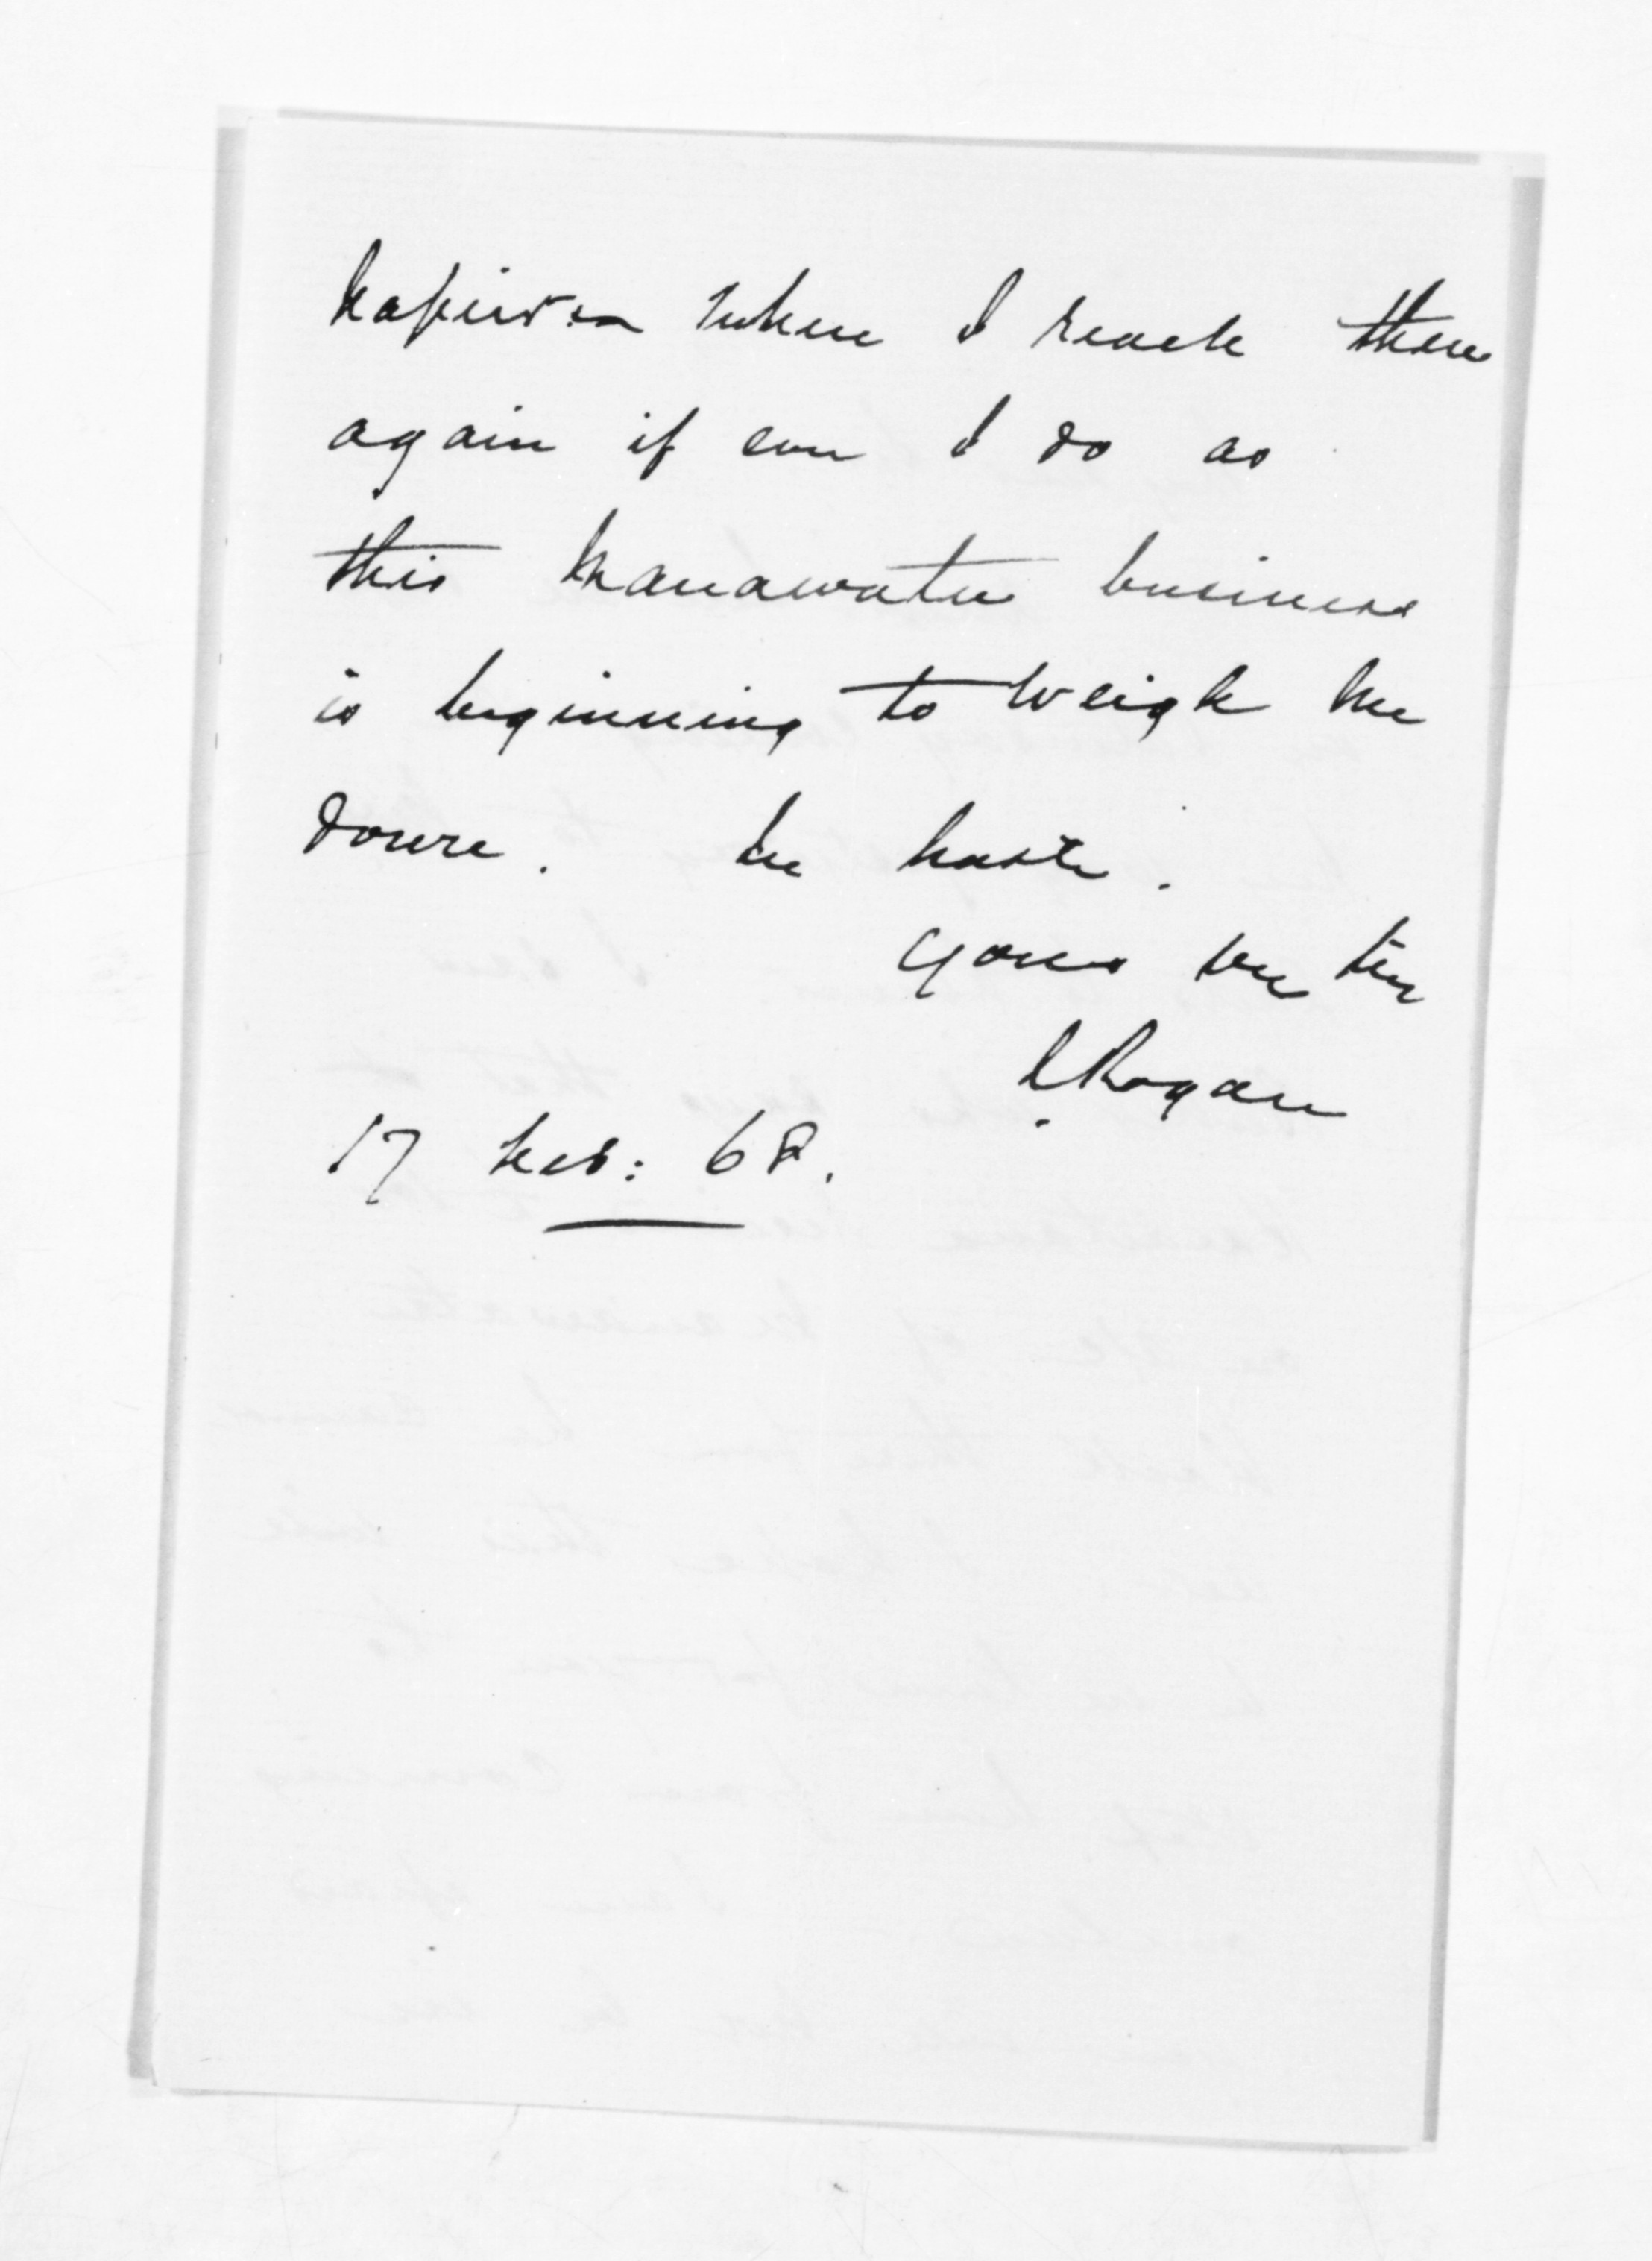 when I reach there
again if ever I do as
this Manawatu business
is beginning to weigh me
down. In haste.
Yours very truly
J Rogan
17 Feb: 68.